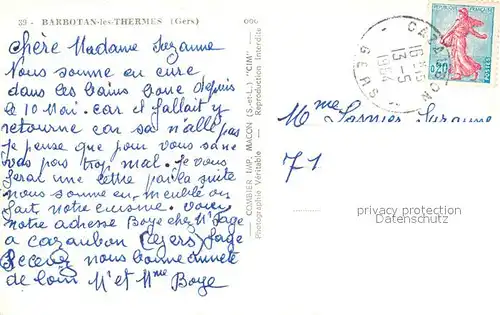 39 - BARBOTAN-les-THERMES (Gers)
Chère Madame Suzanne
Nous somme en cure
dans les bains boue depuis
le 10 Mai. car il fallait y
retourne car sa n'allé pas
Je pense que pour vous sa ne
vas pas trop mal. Je vous
ferai une lettre par la suite
nous somme en meublé on
fait notre cuisine. voici
notre adresse Boye chez Mr Sage
a Cazaubon (Gers)
Recevez nous bonne
de loin Mr et Mme Boye
COMBIER IMP. MACON (S.-et-L.) "CIM"
Photographie Véritable - Reproduction Interdite
CAZAUBON
16 H
13-5
1964
GERS
REPUBLIQUE FRANÇAISE
0,20
POSTES
Mme Suzanne
71
privacy protection
akpool.de